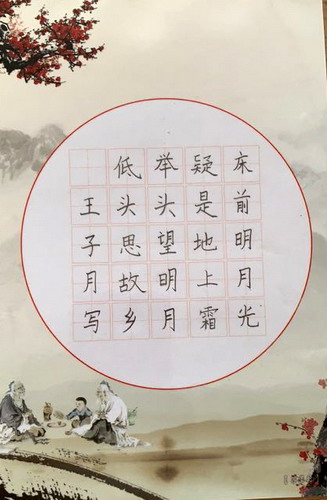 床前明月光
疑是地上霜
举头望明月
低头思故乡
王子月写